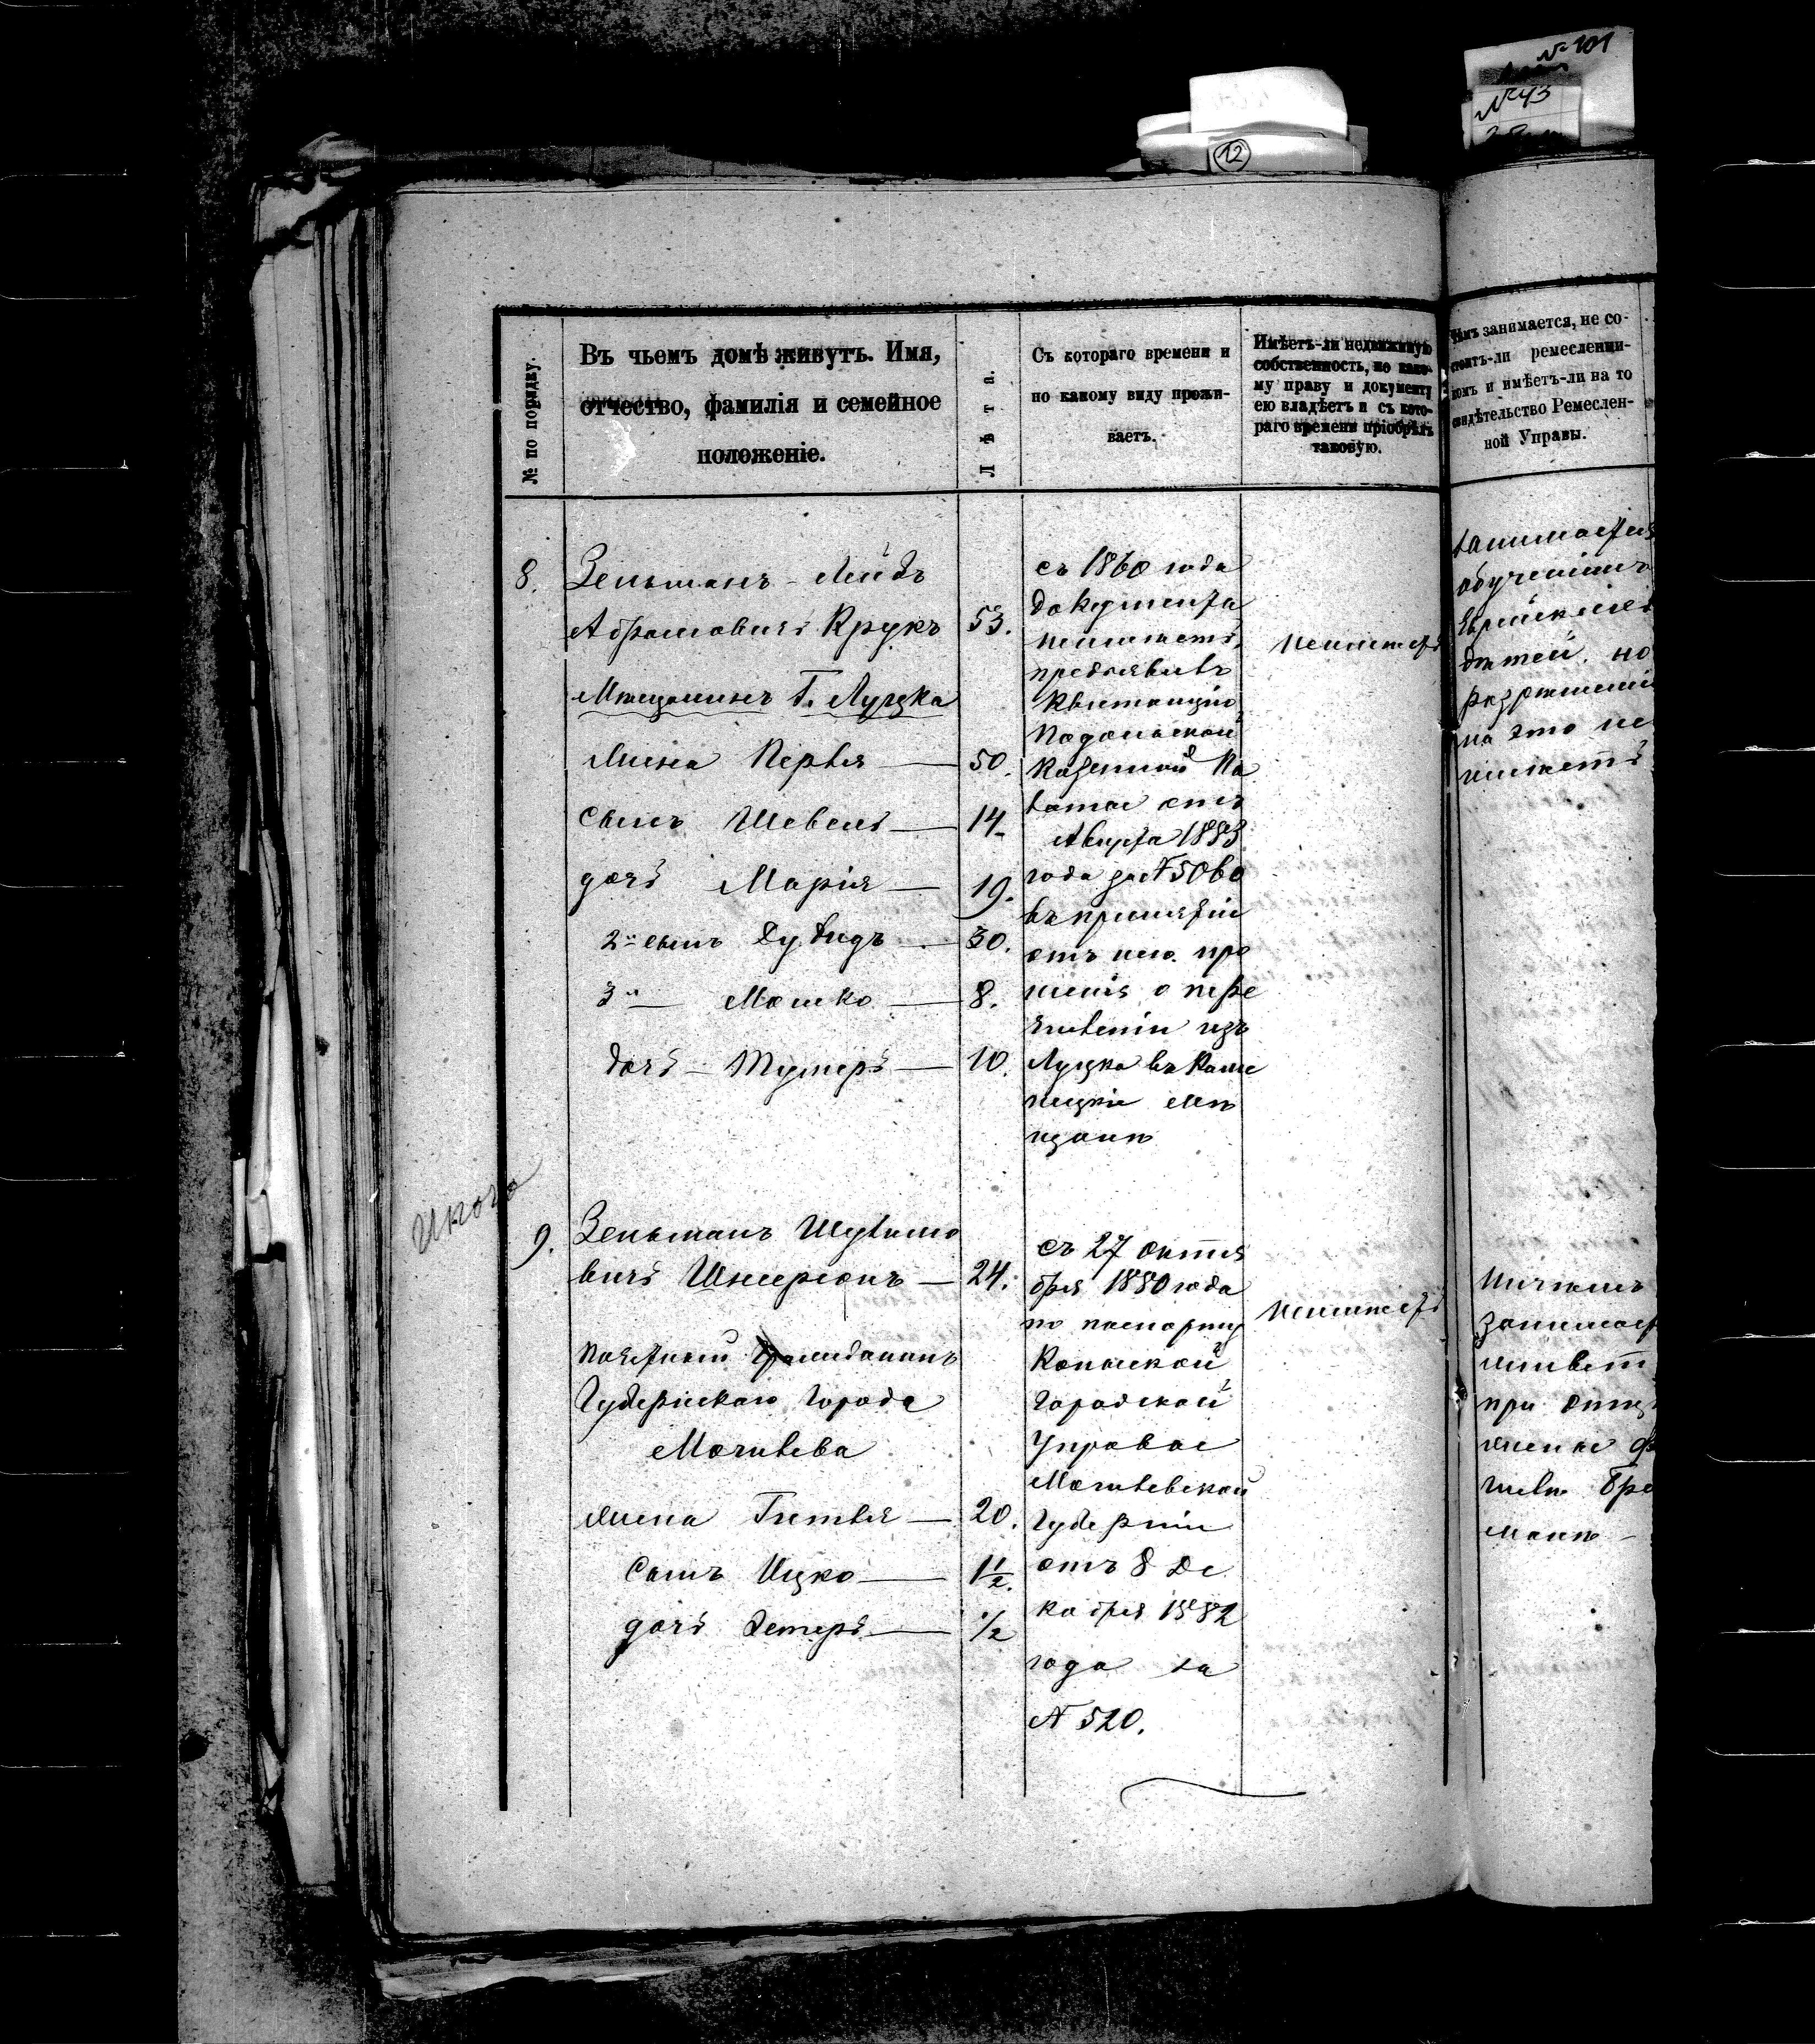 № 101
№ 43
12
№ по порядку.
Въ чьемъ домѣ живутъ. Имя,
отчество, фамилія и семейное
положеніе.
Лѣта.
Съ котораго времени и
по какому виду прожи-
ваетъ.
Имѣетъ-ли недвижимую
собственность, по како-
му праву и документу
ею владѣетъ и съ кото-
раго времени пріобрѣлъ
таковую.
Чѣмъ занимается, не со-
стоитъ-ли ремесленни-
комъ и имѣетъ-ли на то
свидѣтельство Ремеслен-
ной Управы.
8.
Зельманъ-Лейбъ
Абрамовичъ Крукъ 53.
Мѣщанинъ Г. Луцка
Жена Перля — 50.
Сынъ Шевель — 14
дочь Марія — 19.
2й сынъ Дувидъ — 30.
3й — Мошко — 8.
дочь — — 10.
съ 1860 года
документа
неимѣетъ,
предъявивъ
Квитанцію
Подольской
Казенной Па
латы отъ
Августа 1883
года за № 5060
въ принятіи
отъ него про
шенія о пере
численіи изъ
Луцка въ Каме
нецкіе мѣ
щане
неимѣетъ
занимается
обученіемъ
Еврейскихъ
дѣтей, но
разрѣшенія
на это не
имѣетъ
9.
Зельманъ
вичъ Шнеерсонъ — 24.
Почетный Гражданинъ
Губернскаго города
Могилева
Жена Гитля — 20.
Сынъ Ицко — 1 1/2.
дочь Эстеръ — 1/2
съ 27 октя
бря 1880 года
по паспорту
Копыской
Городской
Управы
Могилевской
Губерніи
отъ 8 Де
кабря 1882
года за
№ 520.
неимѣетъ
Ничѣмъ
занимает
живетъ
при отцѣ
жены